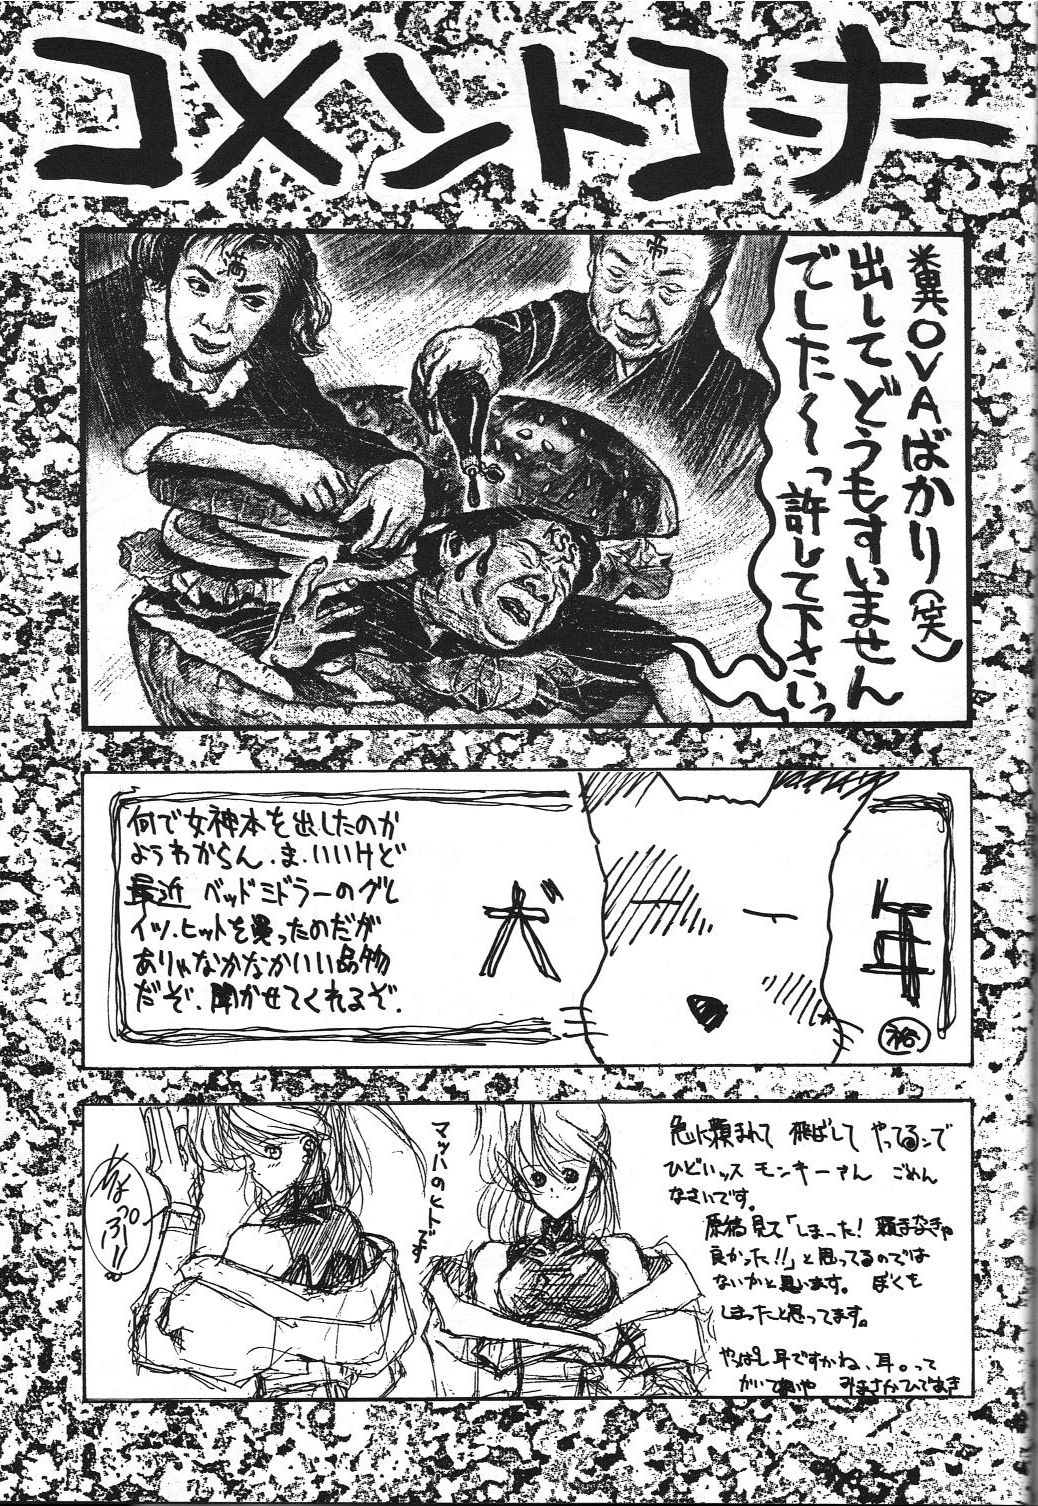 コメントコーナー
糞OVAばかり(笑)
出してどうもすいません
でした～～っ許して下さいっ
何で女神本を出したのか
ようわからん、ま、いいけど
最近 ベッドミドラーのグレ
イツ、ヒットを買ったのだが
ありゃなかなかいい品物
だぞ、聞かせてくれるぞ.
犬
裕
マッハのヒトです
急に頼まれて 飛ばして やってるンで
ひどいッス モンキーさん ごめん
なさいです。
原稿見て「しまった! 頼まなきゃ
良かった!!」と思ってるのでは
ないかと思います。 ぼくも
しまったと思ってます。
やっぱし耳ですかね、耳。って